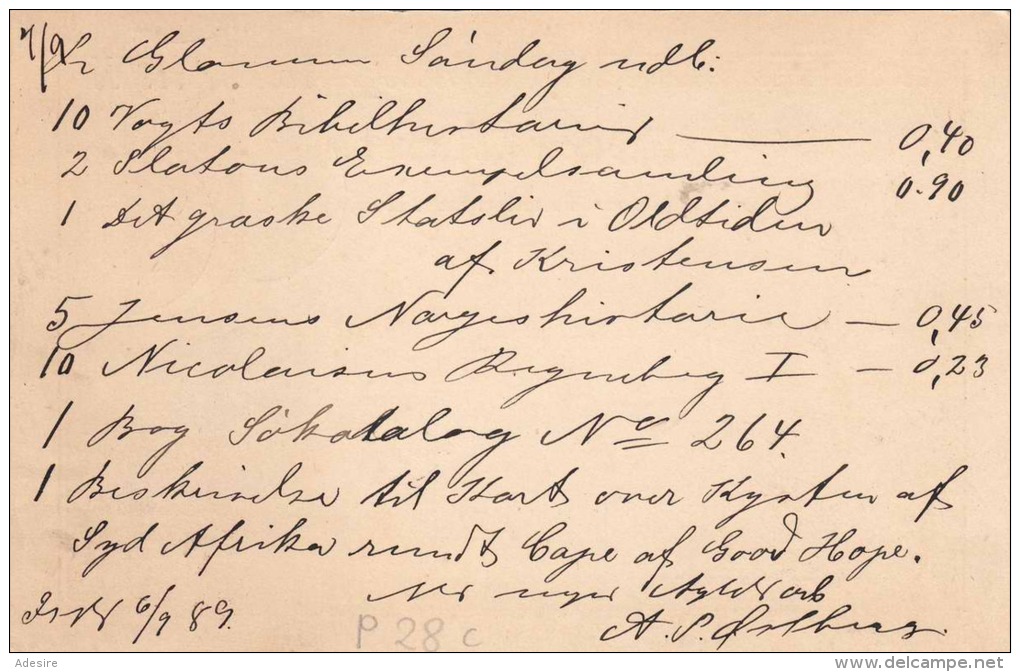 7/9
Glommen Söndag udb:
10 Vogts Bibelhistorie — 0,40
2 Platous Exempelsamling 0.90
1 Det græske Statsliv i Oldtiden
af Kristensen
5 Jensens Norgeshistorie — 0,45
10 Nicolaisens Regnebog I — 0,23
1 Bog Sökatalog No 264.
1 Beskrivelse til Kart over Kysten af
Syd Afrika rundt Cape of Good Hope.
6/9 89.
A. S. Østberg.
P 28 c
Adesire
www.delcampe.net